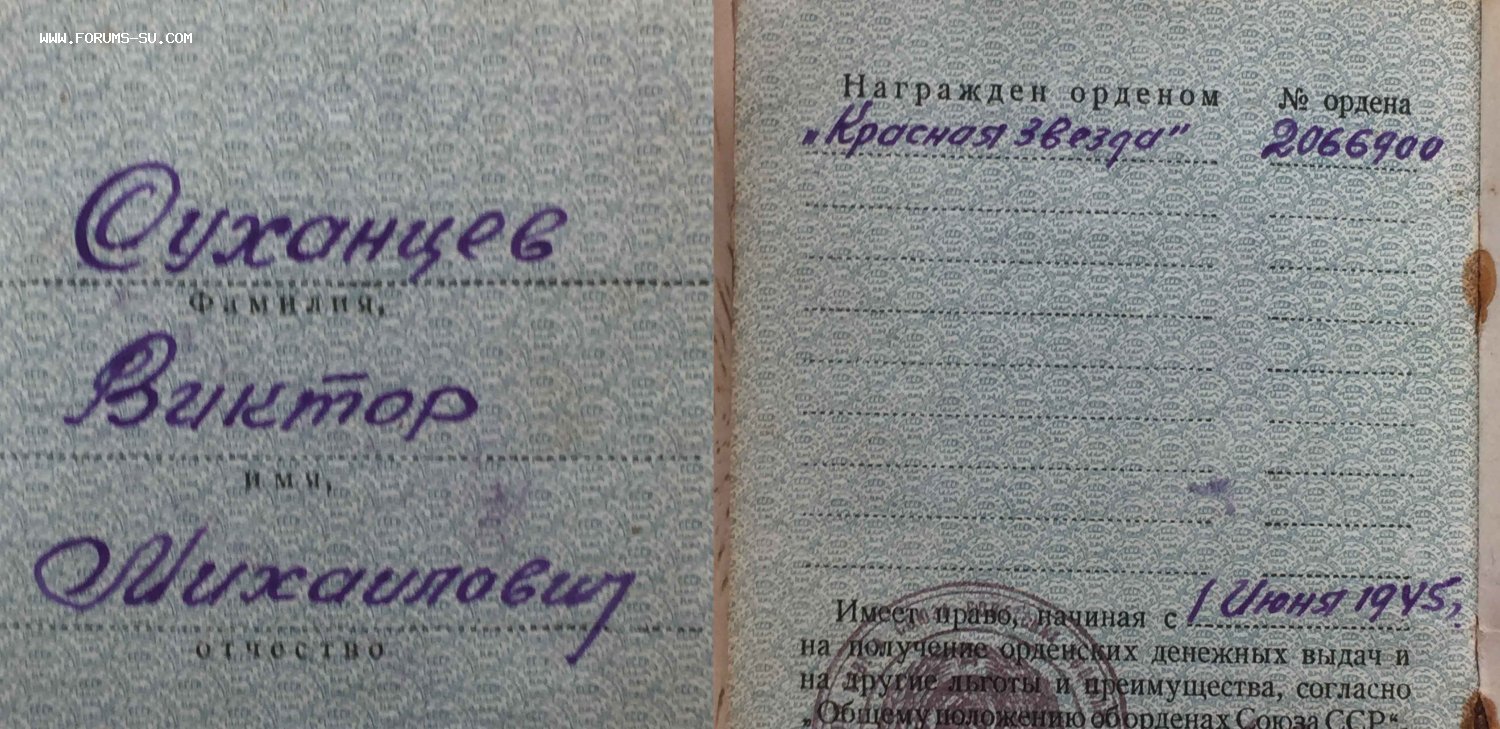 WWW.FORUMS-SU.COM
Суханцев
Фамилия,
Виктор
имя,
Михаилович
отчество
Награжден орденом № ордена
„Красная Звезда" 2066900
Имеет право, начиная с 1 Июня 1945,
на получение орденских денежных выдач и
на другие льготы и преимущества, согласно
„Общему положению об орденах Союза ССР“